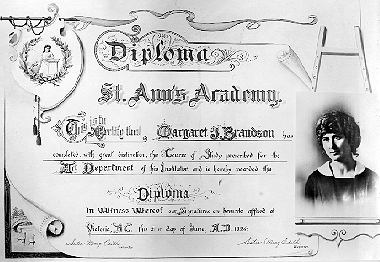 Diploma
St. Ann's Academy.
This is to Certify that Margaret J. Brandson has
completed, with great distinction, the Course of Study prescribed for the
Art Department of this Institution and is hereby awarded this
Diploma
In Witness Whereof our Signatures are hereunto affixed at
Victoria, B.C. this 21st day of June, A.D. 1926.
Sister Mary
Sister Mary Edith